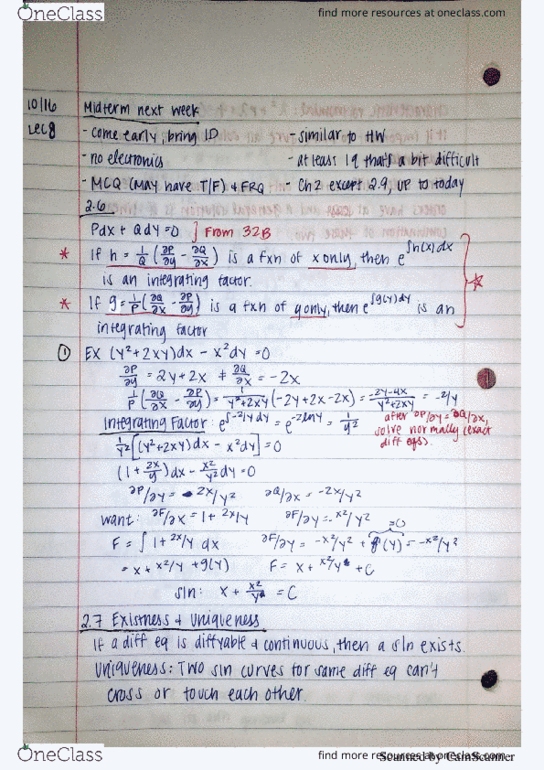 OneClass
find more resources at oneclass.com
10/16 Midterm next week
Lec 8 - come early, bring ID - similar to HW
- no elecronics - at least 1 q that's a bit difficult
- MCQ (May have T/F) & FRQ - Ch 2 except 2.9, up to today
2.6
Pdx + Qdy = 0 ] From 32B
* If h = 1/Q (∂P/∂y - ∂Q/∂x) is a fxn of x only, then e^∫h(x)dx
is an integrating factor. *
* If g = 1/P (∂Q/∂x - ∂P/∂y) is a fxn of y only, then e^∫g(y)dy is an
integrating factor
① EX (y²+2xy)dx - x²dy = 0
∂P/∂y = 2y+2x ≠ ∂Q/∂x = -2x
1/P (∂Q/∂x - ∂P/∂y) = 1/(y²+2xy) (-2y+2x-2x) = (-2y-4x)/(y²+2xy) = -2/y
Integrating Factor: e^∫-2/y dy = e^-2lny = 1/y²
after ∂P/∂y = ∂Q/∂x,
solve normally (exact
diff eqs)
1/y² [(y²+2xy)dx - x²dy] = 0
(1+ 2x/y)dx - x²/y² dy = 0
∂P/∂y = -2x/y² ∂Q/∂x = -2x/y²
want: ∂F/∂x = 1+ 2x/y ∂F/∂y = -x²/y²
F = ∫ 1+ 2x/y dx ∂F/∂y = -x²/y² + g'(y) = -x²/y²
=0
= x + x²/y + g(y) F = x + x²/y + C
sln: x + x²/y = C
2.7 Existness & Uniqueness
If a diff eq is diffyable & continuous, then a sln exists.
Uniqueness: Two sln curves for same diff eq can't
cross or touch each other.
OneClass
find more resources at oneclass.com
Scanned by CamScanner